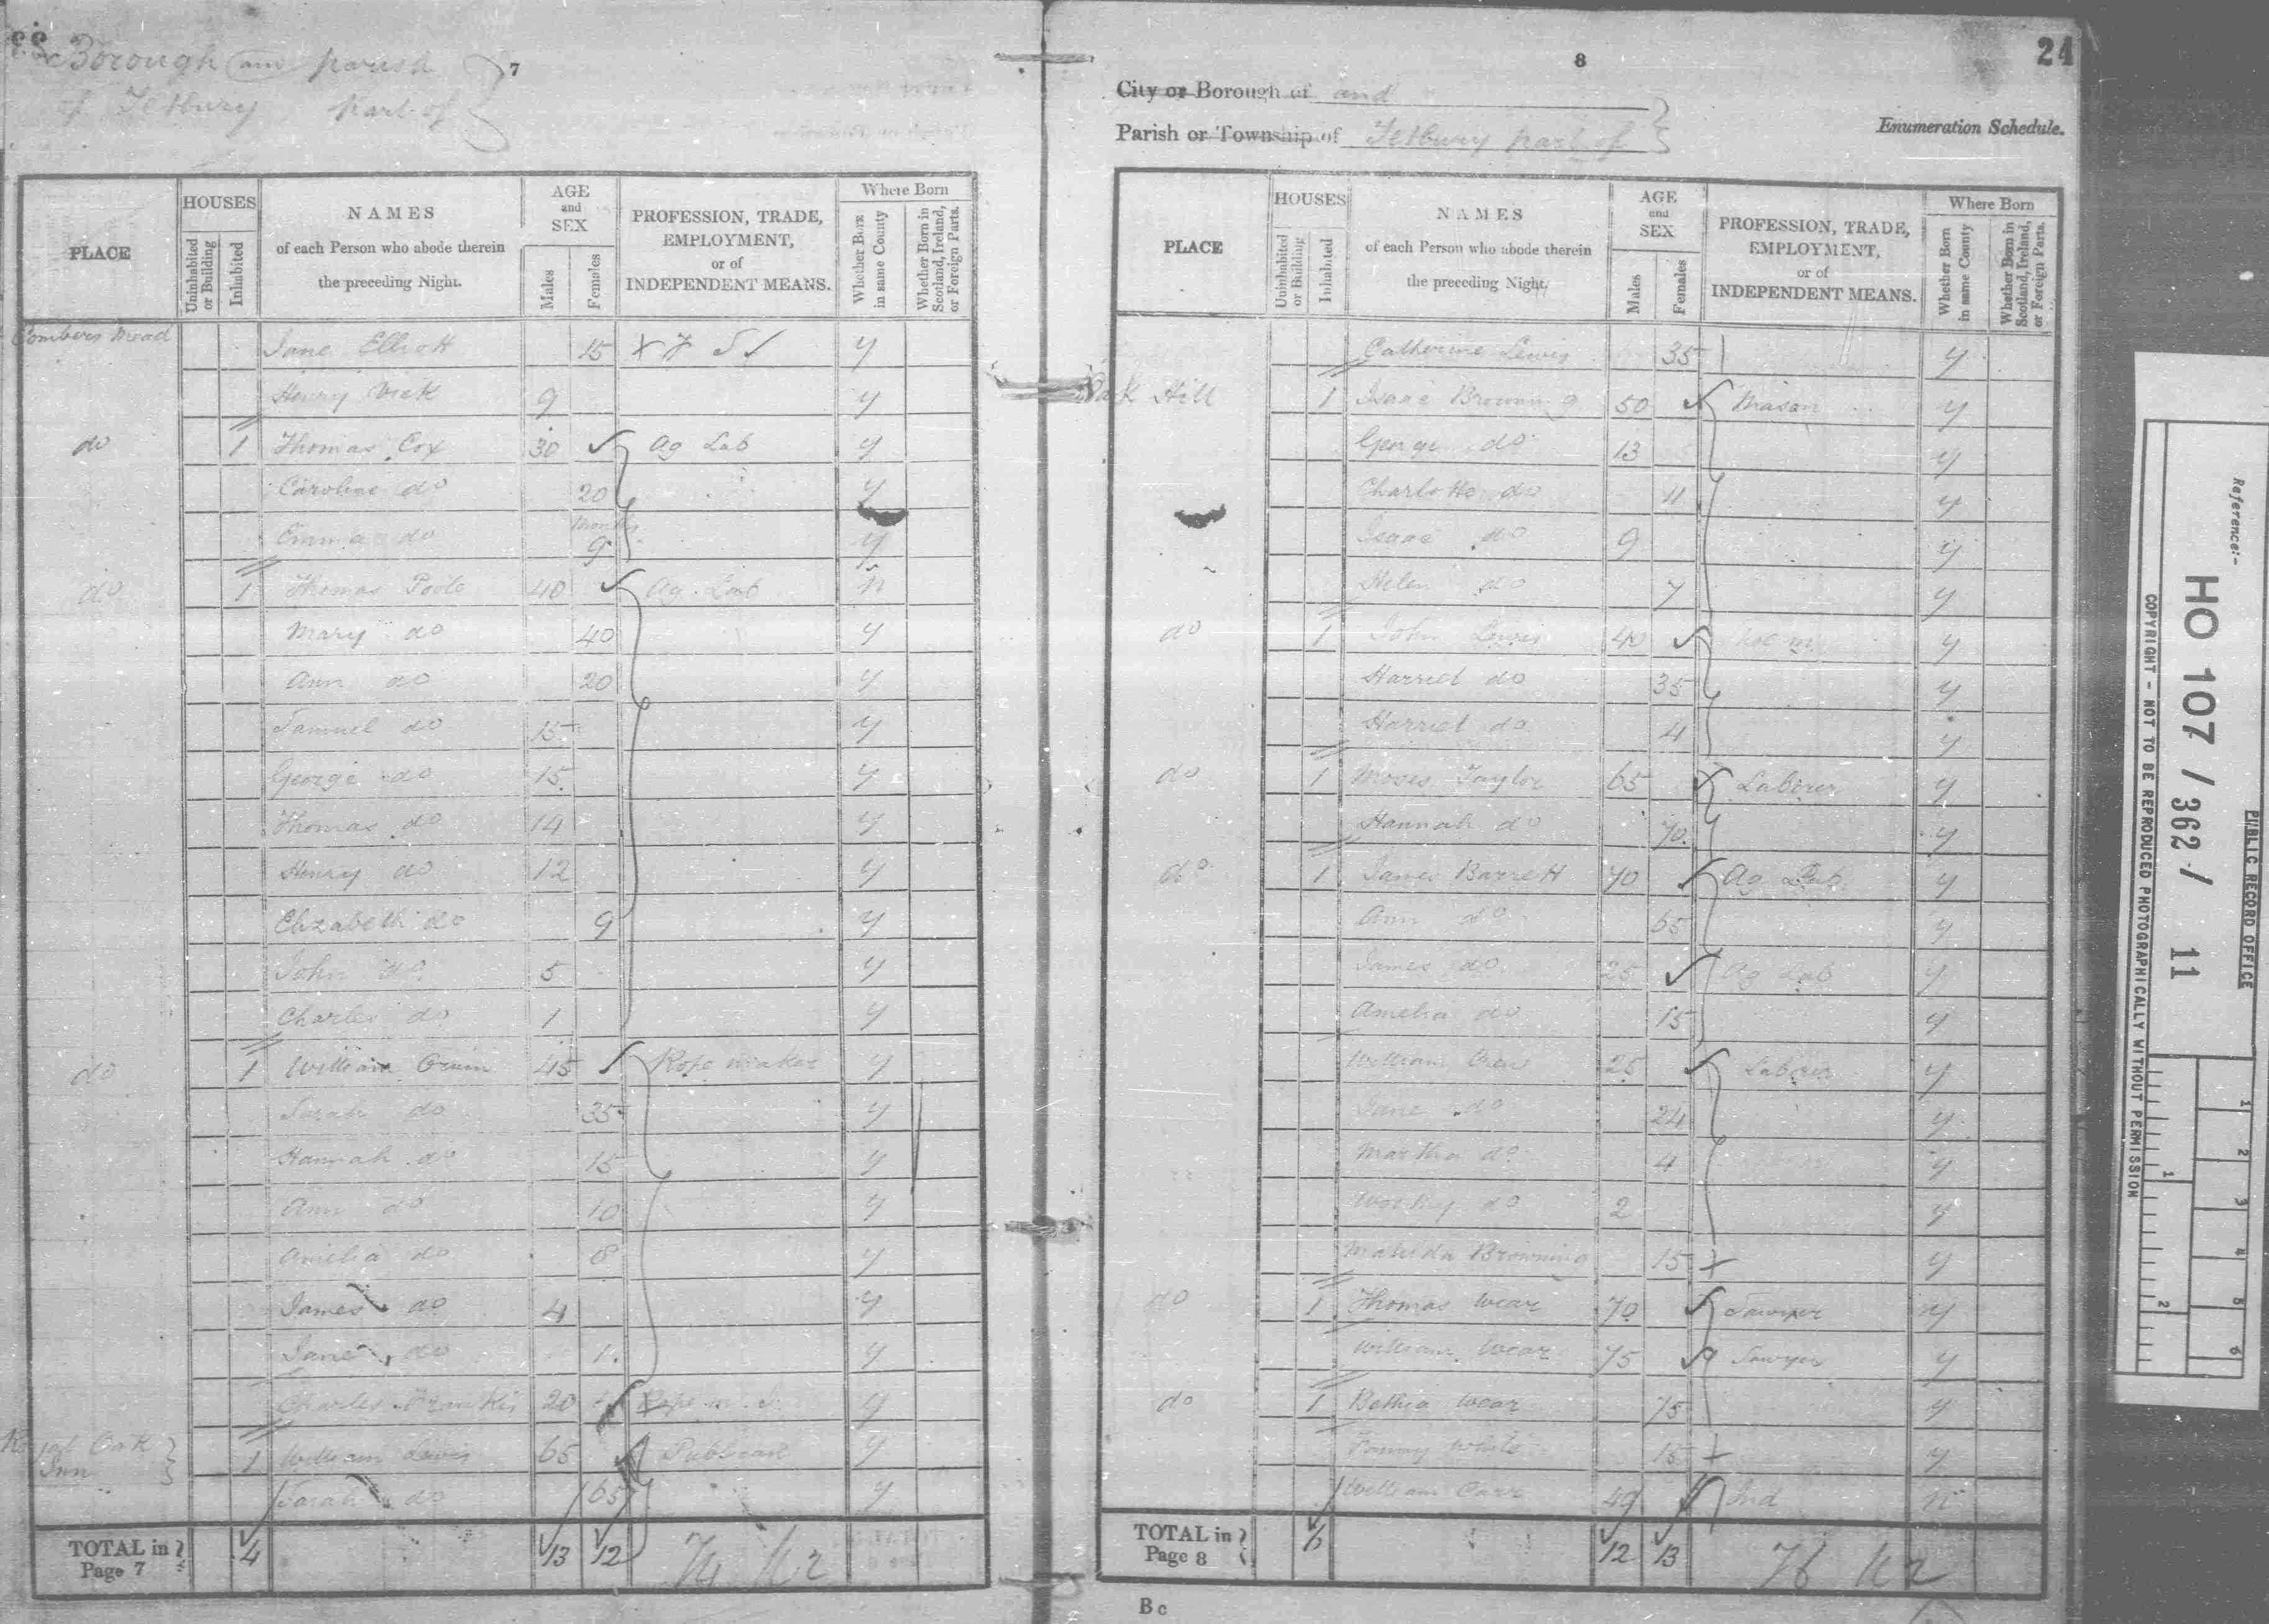 Borough and parish
of Tetbury part of
7
PLACE
HOUSES
Uninhabited or Building
Inhabited
NAMES
of each Person who abode therein
the preceding Night.
AGE
and
SEX
Males
Females
PROFESSION, TRADE,
EMPLOYMENT,
or of
INDEPENDENT MEANS.
Where Born
Whether Born in same County
Whether Born in Scotland, Ireland, or Foreign Parts.
Combers Mead Jane Elliott 15 F S y
Henry Vick 9 y
do 1 Thomas Cox 30 Ag Lab y
Caroline do 20 y
Emma do Months 9 y
do 1 Thomas Poole 40 Ag. Lab n
Mary do 40 y
Ann do 20 y
Samuel do 15 y
George do 15 y
Thomas do 14 y
Henry do 12 y
Elizabeth do 9 y
John do 5 y
Charles do 1 y
do 1 William 45 Rope maker y
Sarah do 35 y
Hannah do 15 y
Ann do 10 y
Amelia do 8 y
James do 4 y
Jane do 1 y
Charles 20 Rope m. J. y
Royal Oak Inn 1 William Lewis 65 Publican y
Sarah do 65 y
TOTAL in Page 7 4 13 12
8
24
City or Borough of and
Parish or Township of Tetbury part of
Enumeration Schedule.
PLACE
HOUSES
Uninhabited or Building
Inhabited
NAMES
of each Person who abode therein
the preceding Night.
AGE
and
SEX
Males
Females
PROFESSION, TRADE,
EMPLOYMENT,
or of
INDEPENDENT MEANS.
Where Born
Whether Born in same County
Whether Born in Scotland, Ireland, or Foreign Parts.
Catherine Lewis 35 y
Hill 1 Isaac Browning 50 Mason y
George do 13 y
Charlotte do 11 y
Isaac do 9 y
Helen do 7 y
do 1 John Lewis 40 y
Harriet do 35 y
Harriet do 4 y
do 1 Moses Taylor 65 Laborer y
Hannah do 70 y
do 1 James Barrett 70 Ag Lab y
Ann do 65 y
James do 25 Ag Lab y
Amelia do 15 y
William Crew 25 Laborer y
Jane do 24 y
Martha do 4 y
do 2 y
Matilda Browning 15 y
do 1 Thomas Wear 70 Sawyer y
William Wear 75 Sawyer y
do 1 Bethia Wear 75 y
Fanny White 15 y
William Carr 49 Ind n
TOTAL in Page 8 6 12 13
Bc
Reference:-
HO 107 / 362 / 11
PUBLIC RECORD OFFICE
COPYRIGHT - NOT TO BE REPRODUCED PHOTOGRAPHICALLY WITHOUT PERMISSION
1
2
3
4
5
6
1
2